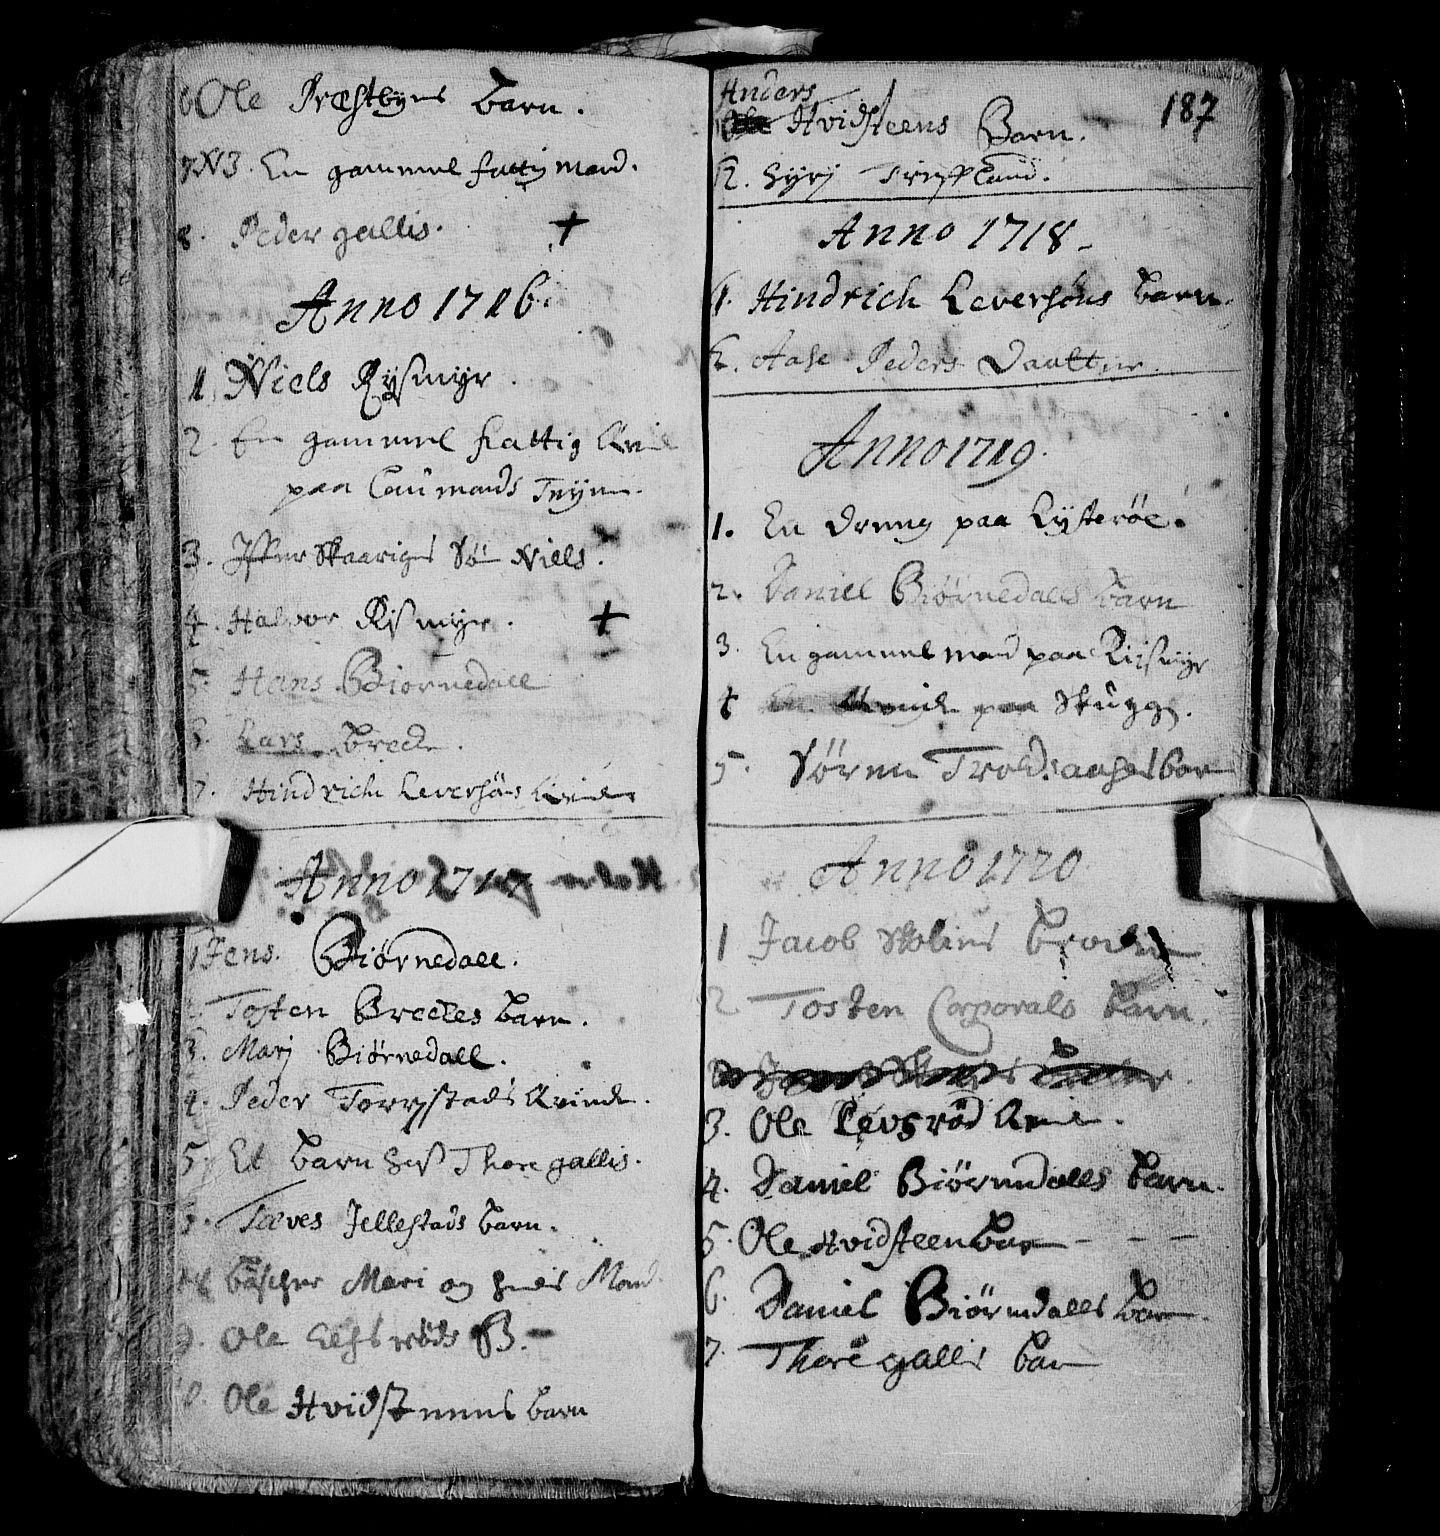 6 Ole Præstbyes barn.
7 NB. En gammel fattig mand.
8. Peder gallis. +
Anno 1716.
1. Niels Rysmyr.
2. En gammel fattig Kvinde
paa
3. Skaariges Søn Niels.
4. Halvor Rismyr. +
5. Hans Biornedall
6. Lars Brecke.
7. Hindrich Leversøns Kvinde
Anno 1717
1 Jens. Biørnedall.
Tosten Breckes barn.
3. Mari Biørnedall.
4. Peder Torrystads Kvinde.
5. Et barn hos Thore gallis.
6. Tæves Jellestads barn.
Mari og hendes Mand.
9. Ole B.
10. Ole Hvidsteens barn
187
Anders
Hvidsteens Barn.
2. Syri
Anno 1718.
1. Hindrich Leversøns barn.
2. Aase Peders Daatter.
Anno 1719.
1. En dreng paa Lysterøe.
2. Daniel Biørnedalls barn
3. En gammel mand paa Riismyr
4 En Kvinde paa Skugge.
5. Søren Troldsaases barn
Anno 1720
1 Jacob Skolens
2 Tosten Corporals barn.
3. Ole Levsrød Kvinde.
4. Daniel Biørndalls barn.
5. Ole Hvidsteen barn - - -
6. Daniel Biørndalls barn.
7. Thore gallis barn